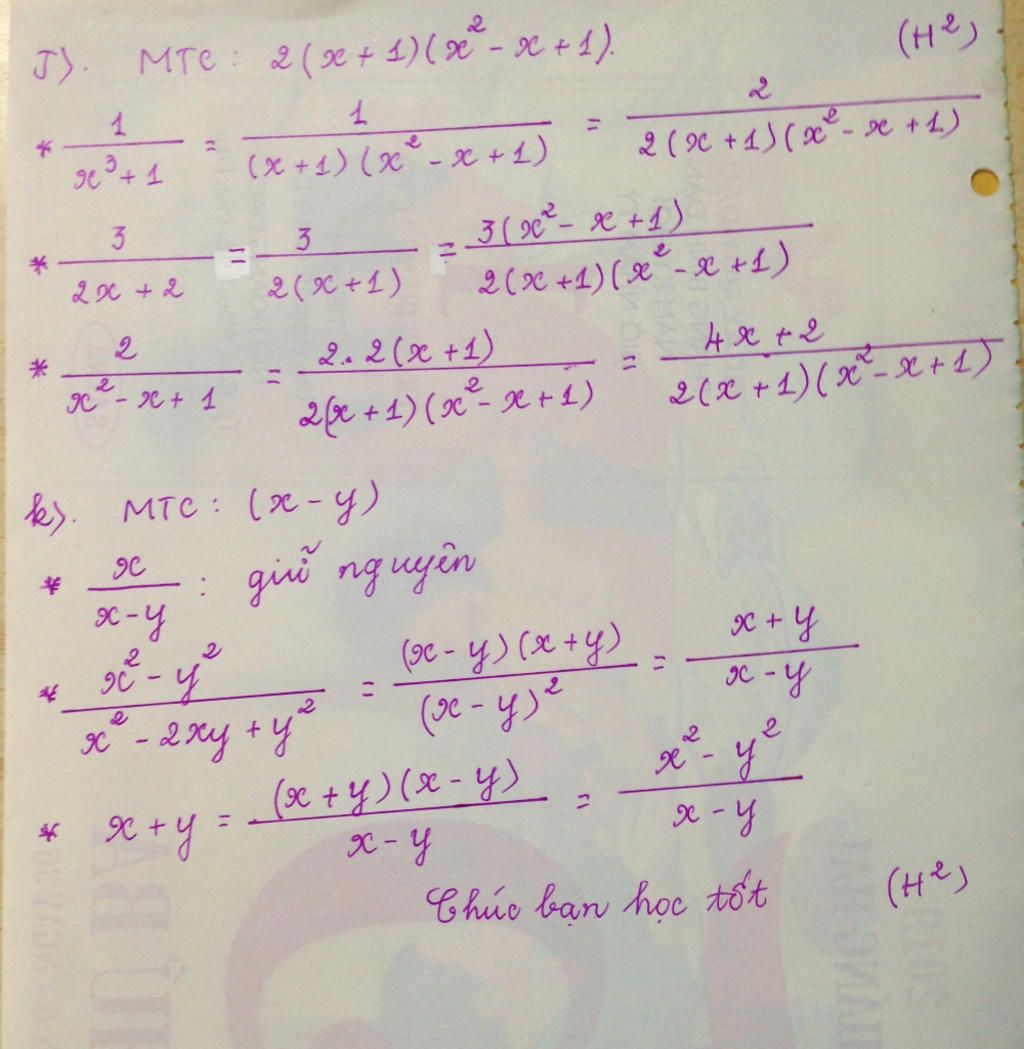 J). MTC: 2(x+1)(x²-x+1). (H²)
* 1/(x³+1) = 1/((x+1)(x²-x+1)) = 2/(2(x+1)(x²-x+1))
* 3/(2x+2) = 3/(2(x+1)) = 3(x²-x+1)/(2(x+1)(x²-x+1))
* 2/(x²-x+1) = 2.2(x+1)/(2(x+1)(x²-x+1)) = (4x+2)/(2(x+1)(x²-x+1))
k). MTC: (x-y)
* x/(x-y) : giữ nguyên
* (x²-y²)/(x²-2xy+y²) = (x-y)(x+y)/(x-y)² = (x+y)/(x-y)
* x+y = (x+y)(x-y)/(x-y) = (x²-y²)/(x-y)
Chúc bạn học tốt (H²)